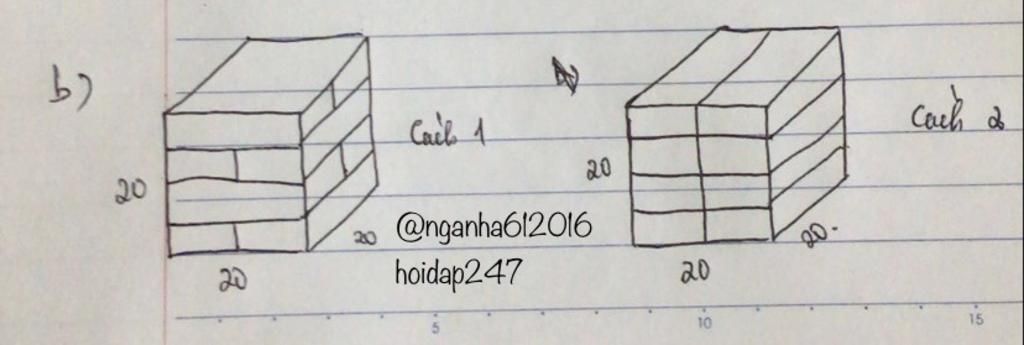 b)
Cách 1
20
20
20
@nganha612016
hoidap247
Cách 2
20
20
20.
5
10
15